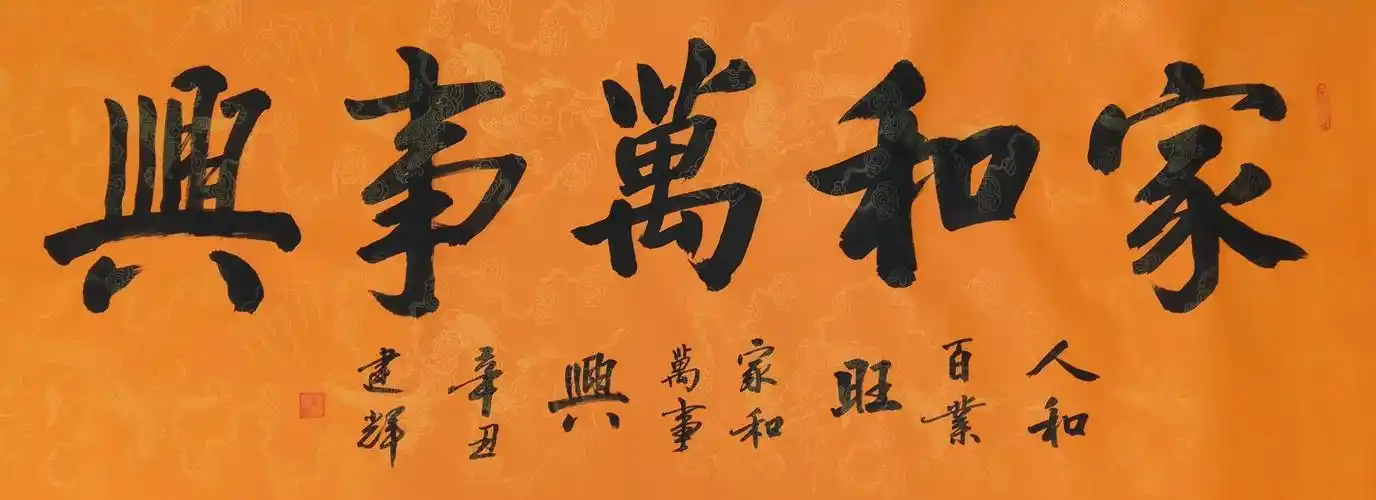 家和萬事興
人和
百業
旺
家和
萬事
興
辛丑
建輝